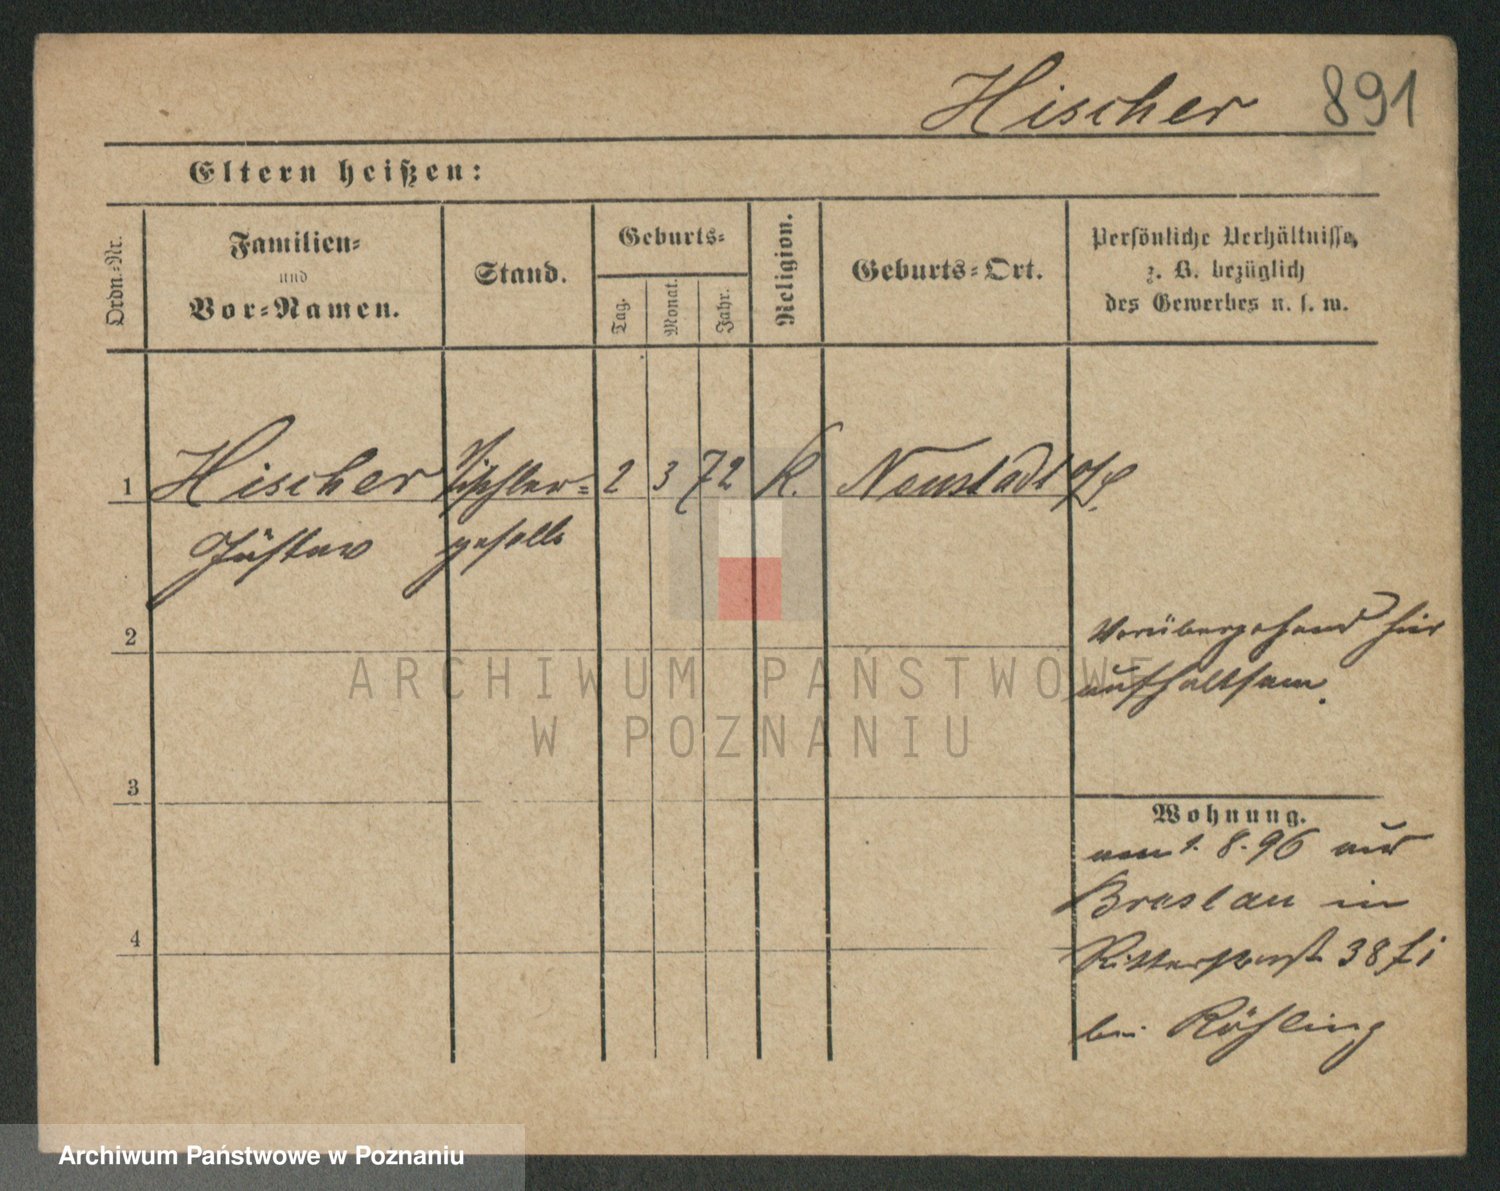 Hischer 891
Eltern heißen:
Ordn.-Nr.
Familien-
und
Vor-Namen.
Stand.
Geburts-
Tag.
Monat.
Jahr.
Religion.
Geburts-Ort.
Persönliche Verhältnisse,
z. B. bezüglich
des Gewerbes u. s. w.
1 Hischer Tischler- 2 3 72 K. Neustadt o/S.
Gustav geselle
2
Vorübergehend hier
aufhaltsam.
3
Wohnung.
vom 1. 8. 96 aus
Breslau in
4
38
bei Röhling
ARCHIWUM PAŃSTWOWE
W POZNANIU
Archiwum Państwowe w Poznaniu